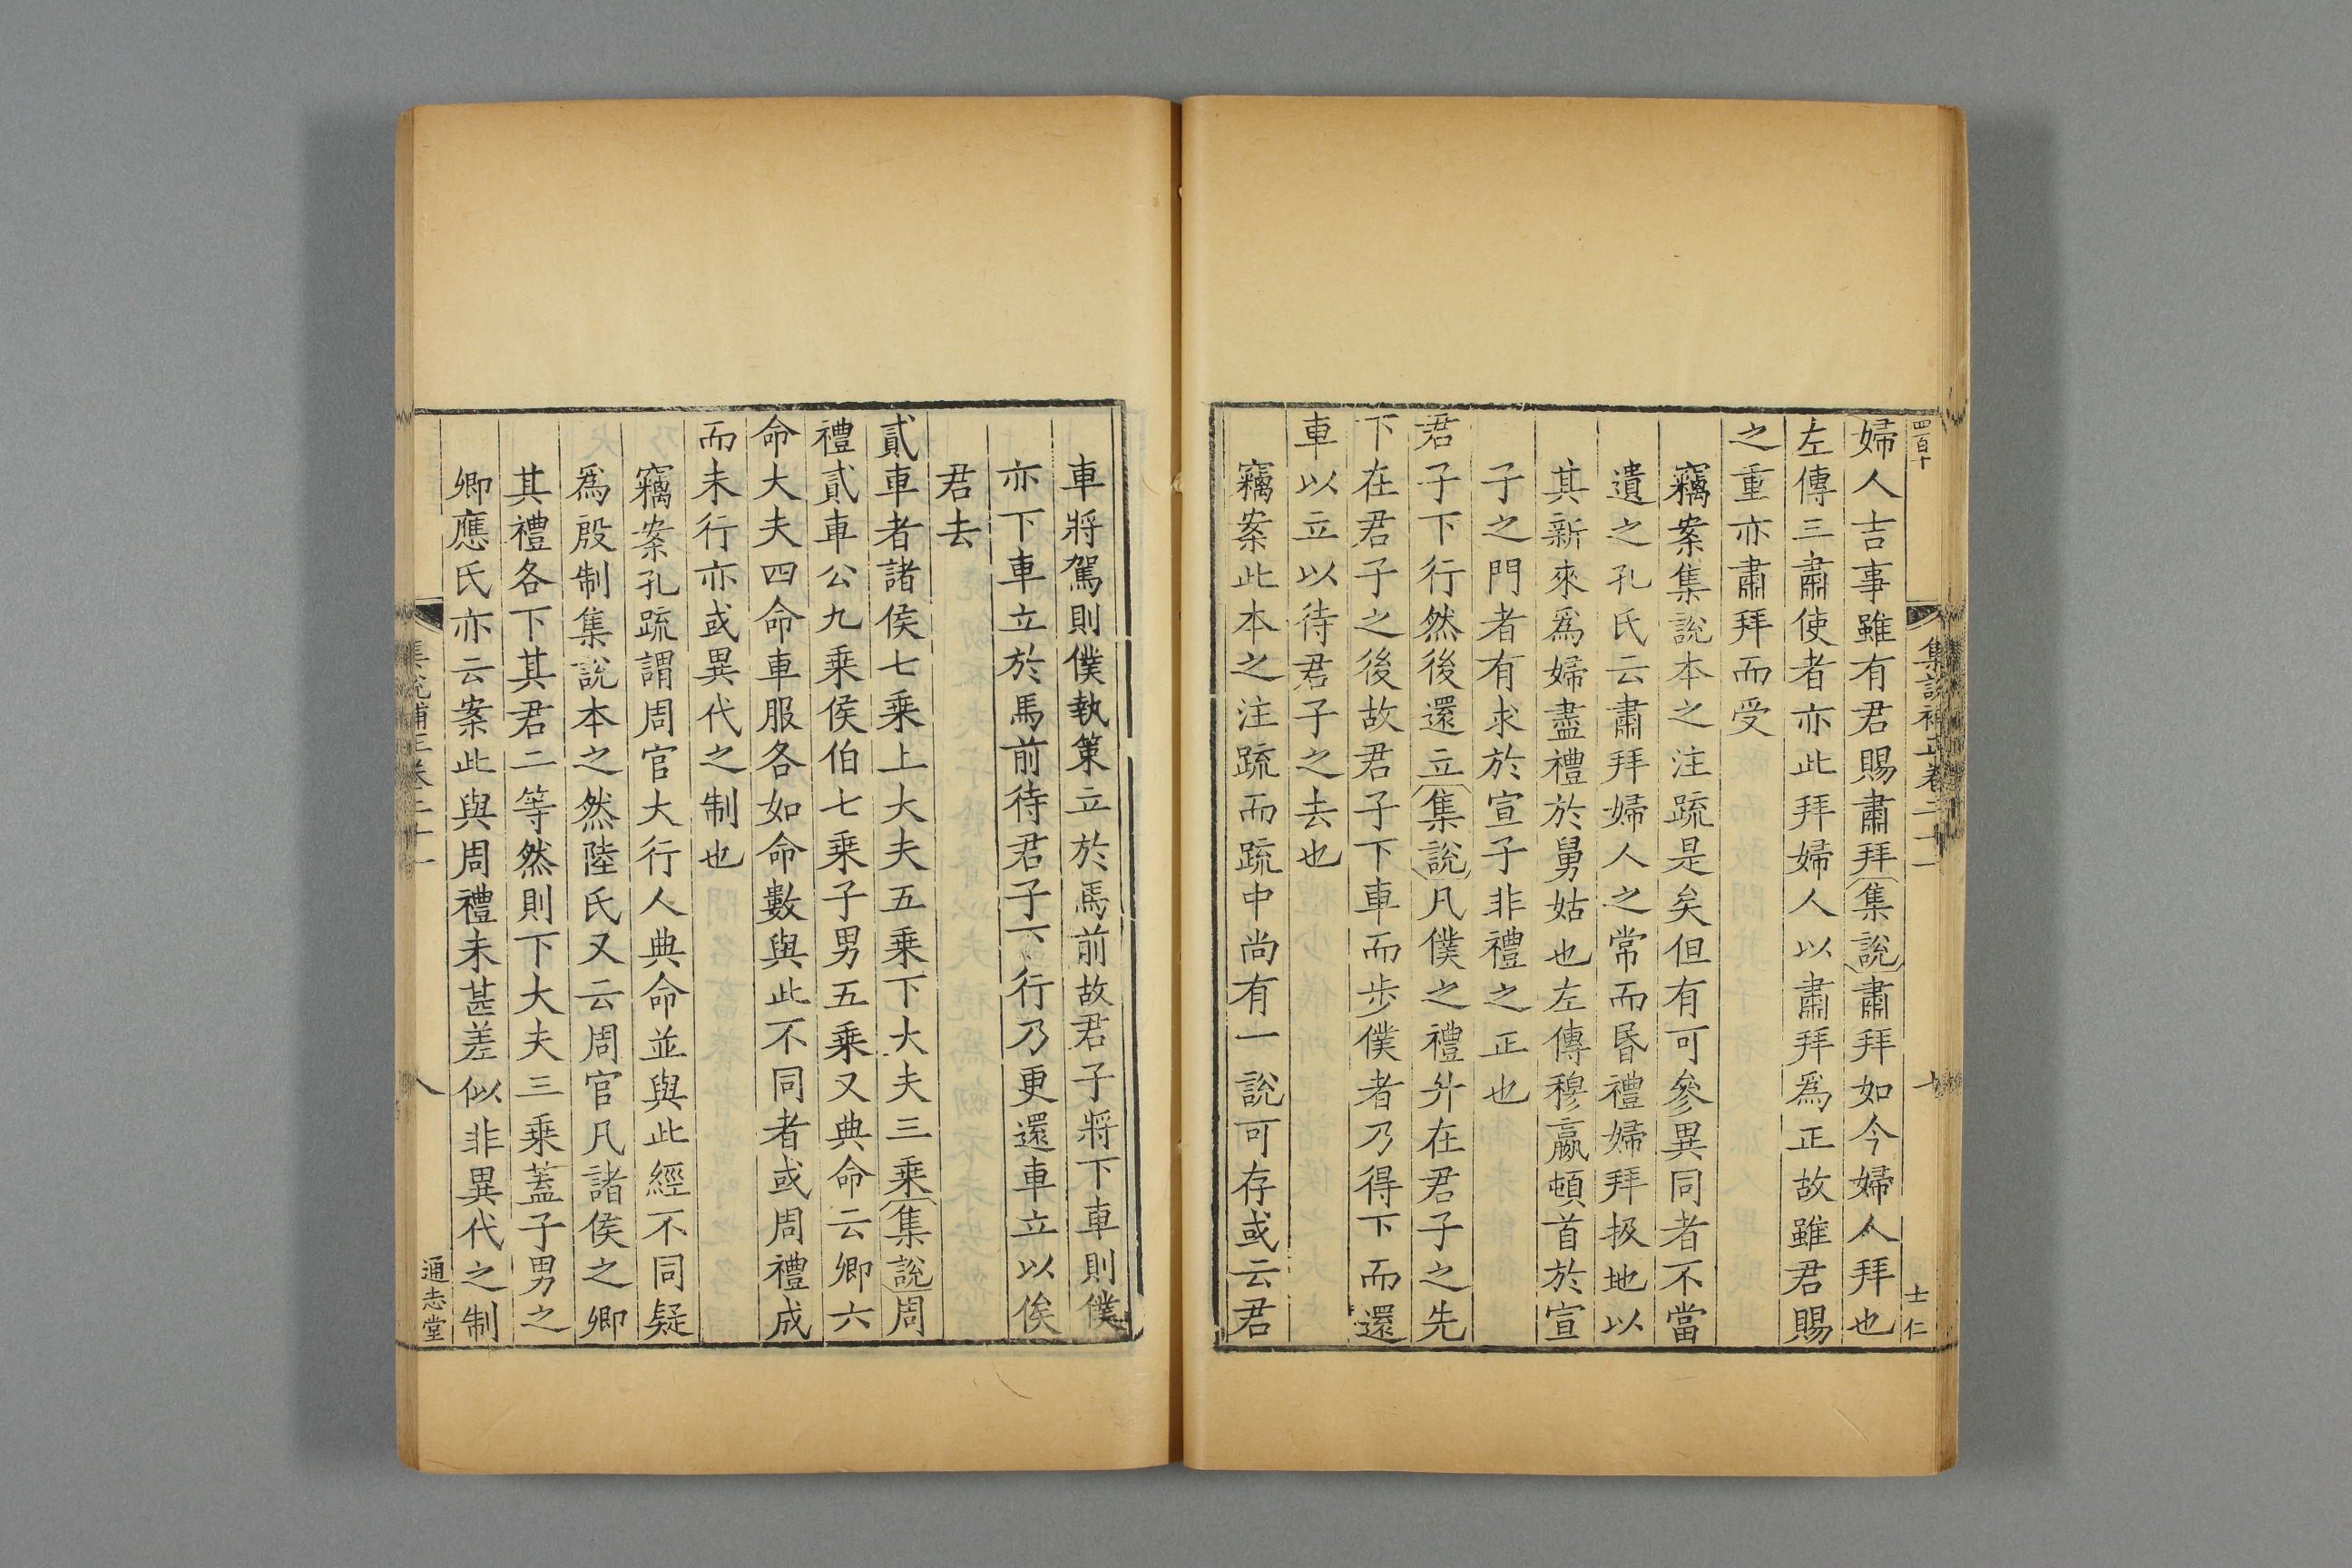 四百十
集說補正卷二十一
十
士仁
婦人吉事雖有君賜肅拜集說肅拜如今婦人拜也
左傳三肅使者亦此拜婦人以肅拜爲正故雖君賜
之重亦肅拜而受
竊案集說本之注疏是矣但有可參異同者不當
遺之孔氏云肅拜婦人之常而昏禮婦拜扱地以
其新來爲婦盡禮於舅姑也左傳穆嬴頓首於宣
子之門者有求於宣子非禮之正也
君子下行然後還立集說凡僕之禮升在君子之先
下在君子之後故君子下車而步僕者乃得下而還
車以立以待君子之去也
竊案此本之注疏而疏中尚有一說可存或云君
車將駕則僕執策立於馬前故君子將下車則僕
亦下車立於馬前待君子下行乃更還車立以俟
君去
貳車者諸侯七乗上大夫五乗下大夫三乗集說周
禮貳車公九乗侯伯七乗子男五乗又典命云卿六
命大夫四命車服各如命數與此不同者或周禮成
而未行亦或異代之制也
竊案孔疏謂周官大行人典命並與此經不同疑
爲殷制集說本之然陸氏又云周官凡諸侯之卿
其禮各下其君二等然則下大夫三乗蓋子男之
卿應氏亦云案此與周禮未甚差似非異代之制
集說補正卷二十一
八
通志堂